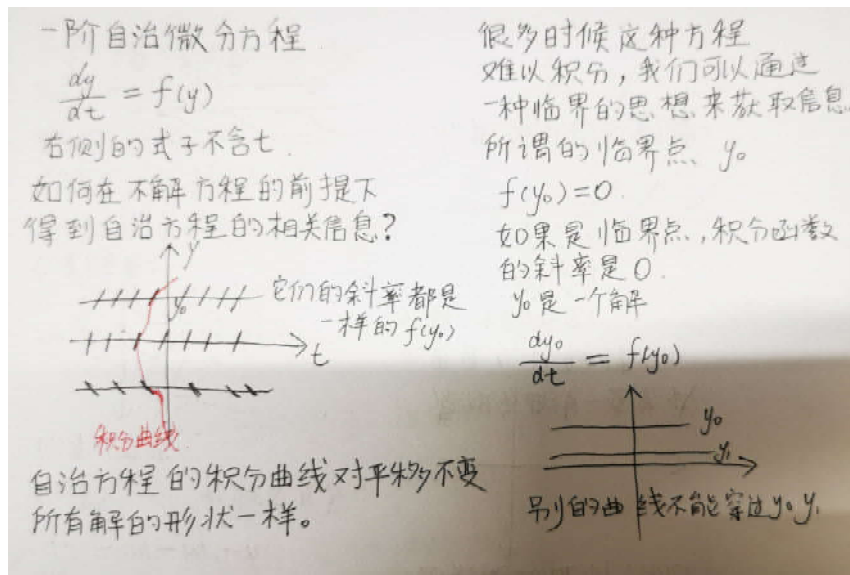 一阶自治微分方程
dy/dt = f(y)
右侧的式子不含t.
如何在不解方程的前提下
得到自治方程的相关信息?
y
y₀
它们的斜率都是
一样的f(y₀)
t
积分曲线
自治方程的积分曲线对平移不变
所有解的形状一样。
很多时候这种方程
难以积分,我们可以通过
一种临界的思想来获取信息
所谓的临界点 y₀
f(y₀)=0.
如果是临界点,积分函数
的斜率是0.
y₀是一个解
dy₀/dt = f(y₀)
y₀
y₁
别的曲线不能穿过y₀y₁